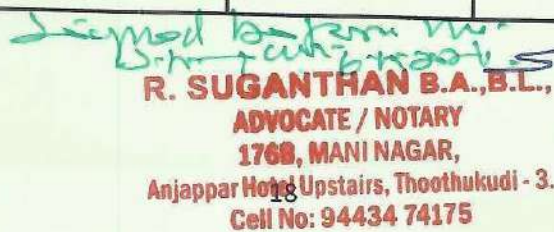 Signed before me
R. SUGANTHAN B.A.,B.L.,
ADVOCATE / NOTARY
176B, MANI NAGAR,
Anjappar Hotel Upstairs, Thoothukudi - 3.
18
Cell No: 94434 74175